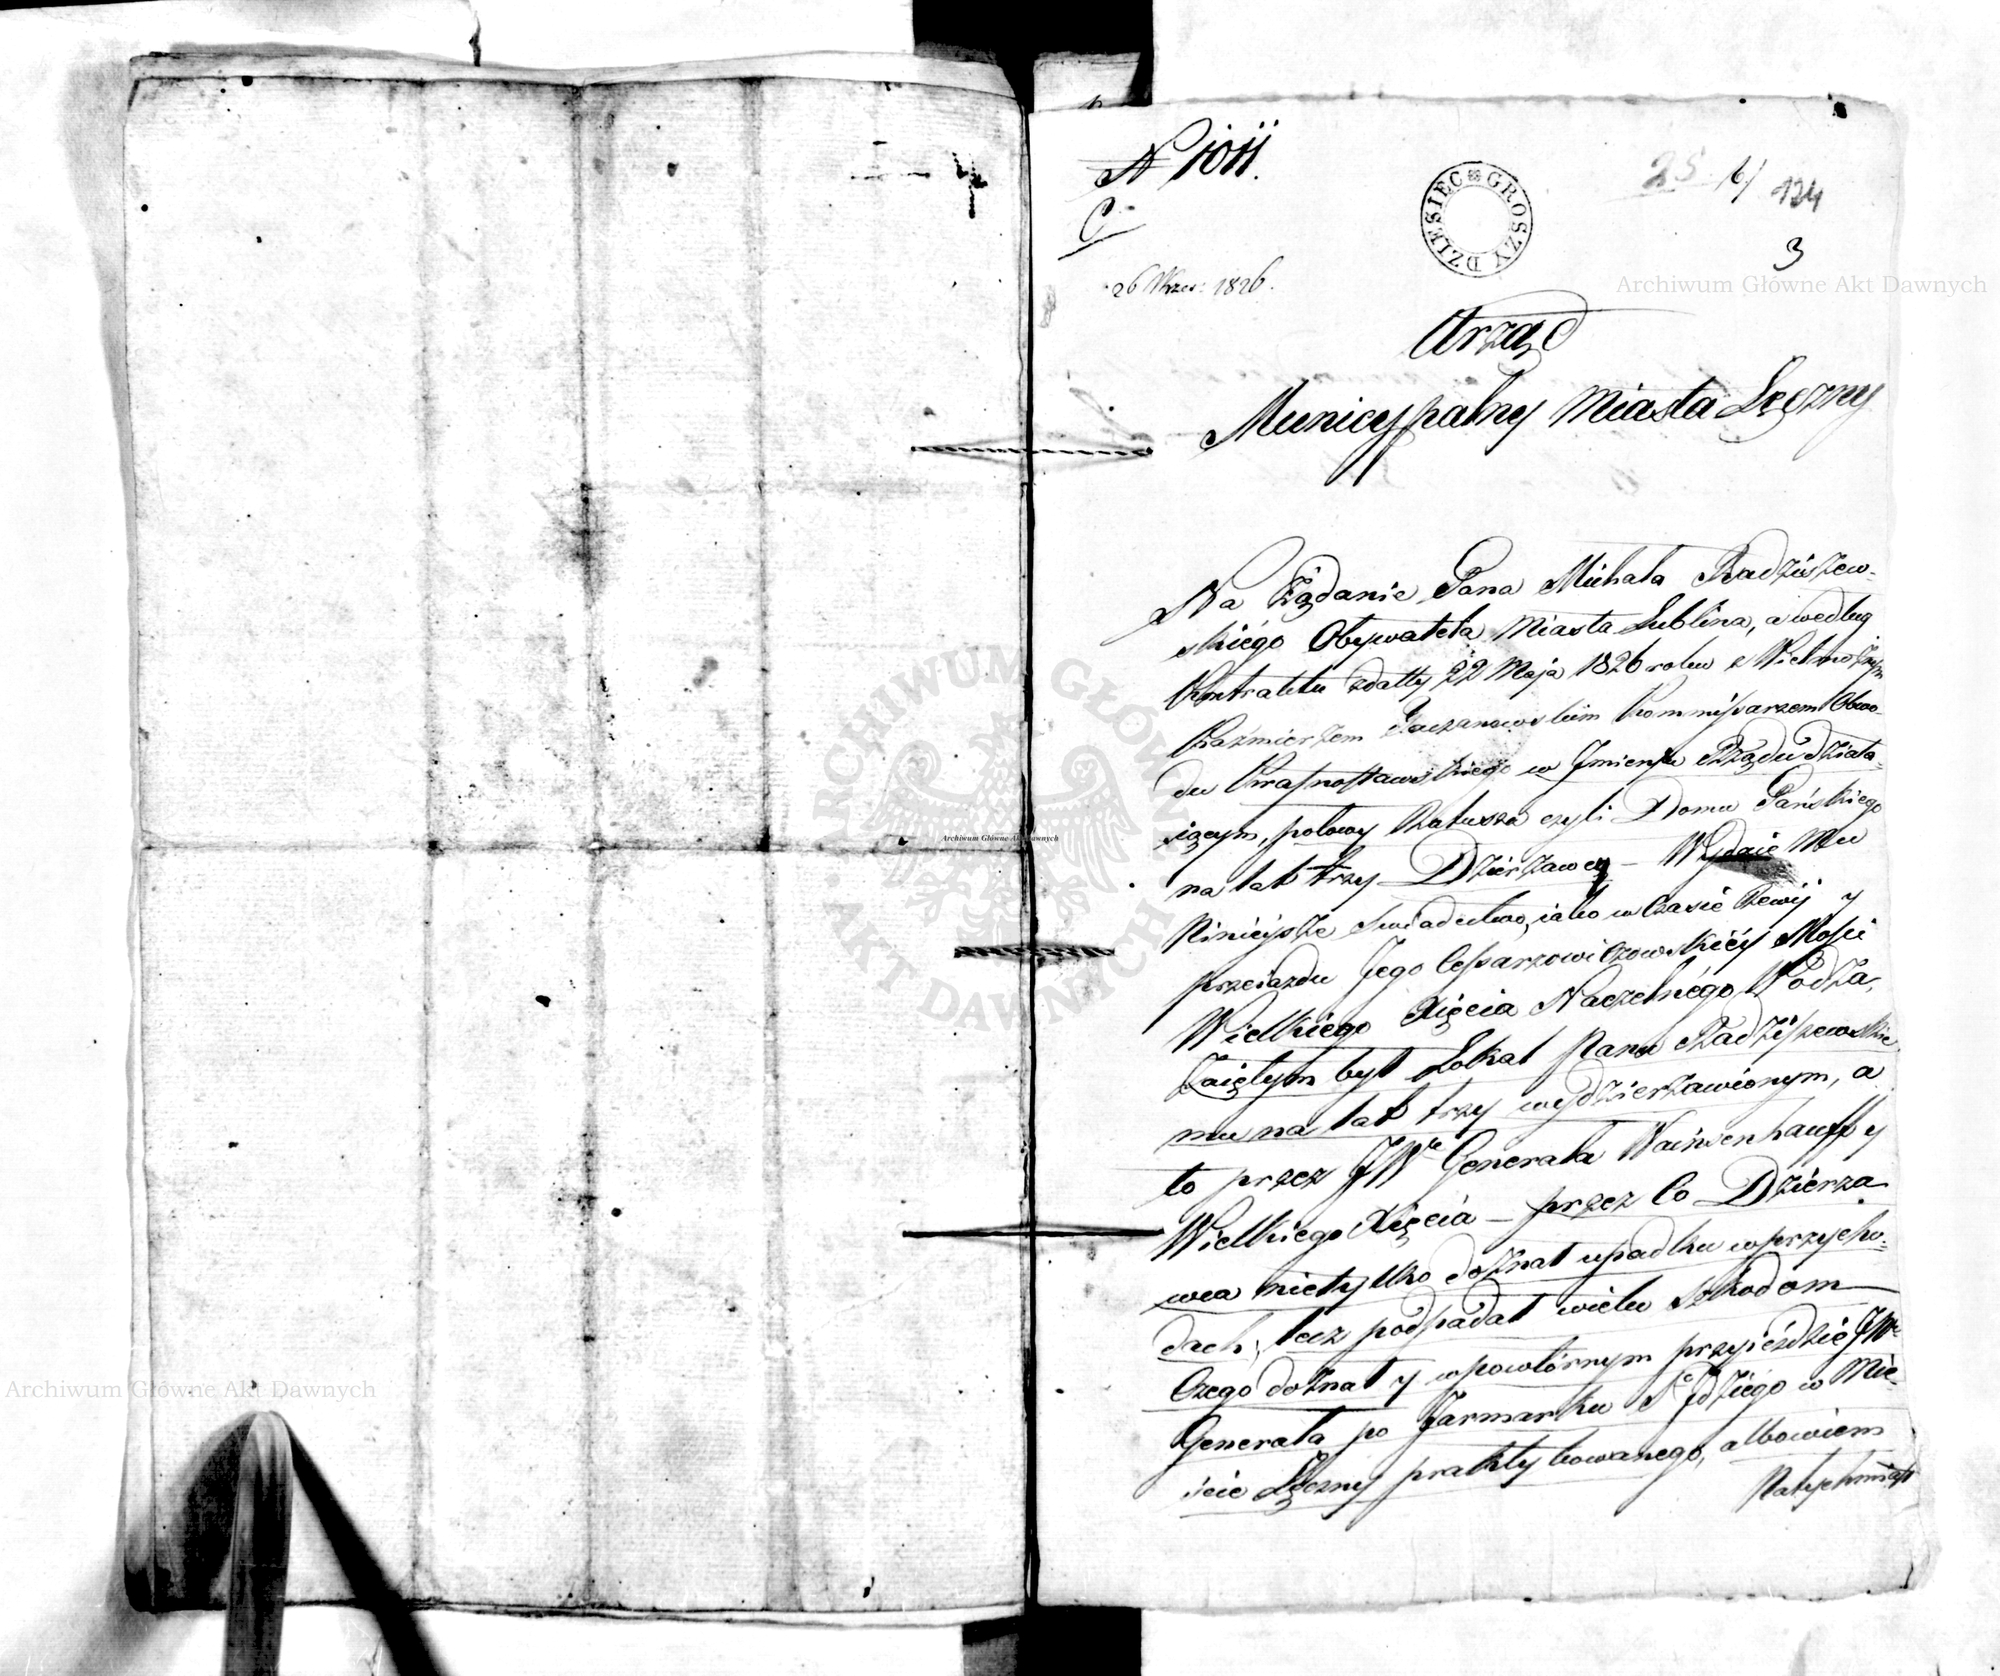 N 1011.
C
26 Wrzes: 1826.
DZIESIEC GROSZY
25 16/ 124
3
Urząd
Municypalny Miasta Łęczny
Na Żądanie Pana Michała Radziszew-
skiégo Obywatela Miasta Lublina, a według
Kontraktu z datty 22 Maja 1826 roku z Wielmożnym
Kaźmierzem Kommissarzem Obwo-
du Krasnostawskiego w Jmieniu Rządu działa-
iącym, połowy Ratusza czyli Domu Pańskiego
na lat trzy Dzierżawcy — Wydaie Mu
Ninieysze Swiadectwo, iako w Czasie Rewij y
przeiazdu Jego Cessarzowiczowskiéy Mości
Wielkiego Xięcia Naczelnégo Wodza,
Zaiętym był Lokal Panu Radziszewskie
mu na lat trzy wydzierżawionym, a
to przez JWo Generała Wainsenhauff y
Wielkiego Xięcia — przez Co Dzierża
wca nietylko doznał upadku w przycho-
dach, lecz podpadał wielu szkodom
Czego doznał y w powtórnym przyieździe JWo
Generała po Jarmarku So Jdziégo w Mie-
ście Łęczny praktykowanego, albowiem
Natychmiast
Archiwum Główne Akt Dawnych
Archiwum Główne Akt Dawnych
Archiwum Główne Akt Dawnych
ARCHIWUM GŁÓWNE AKT DAWNYCH